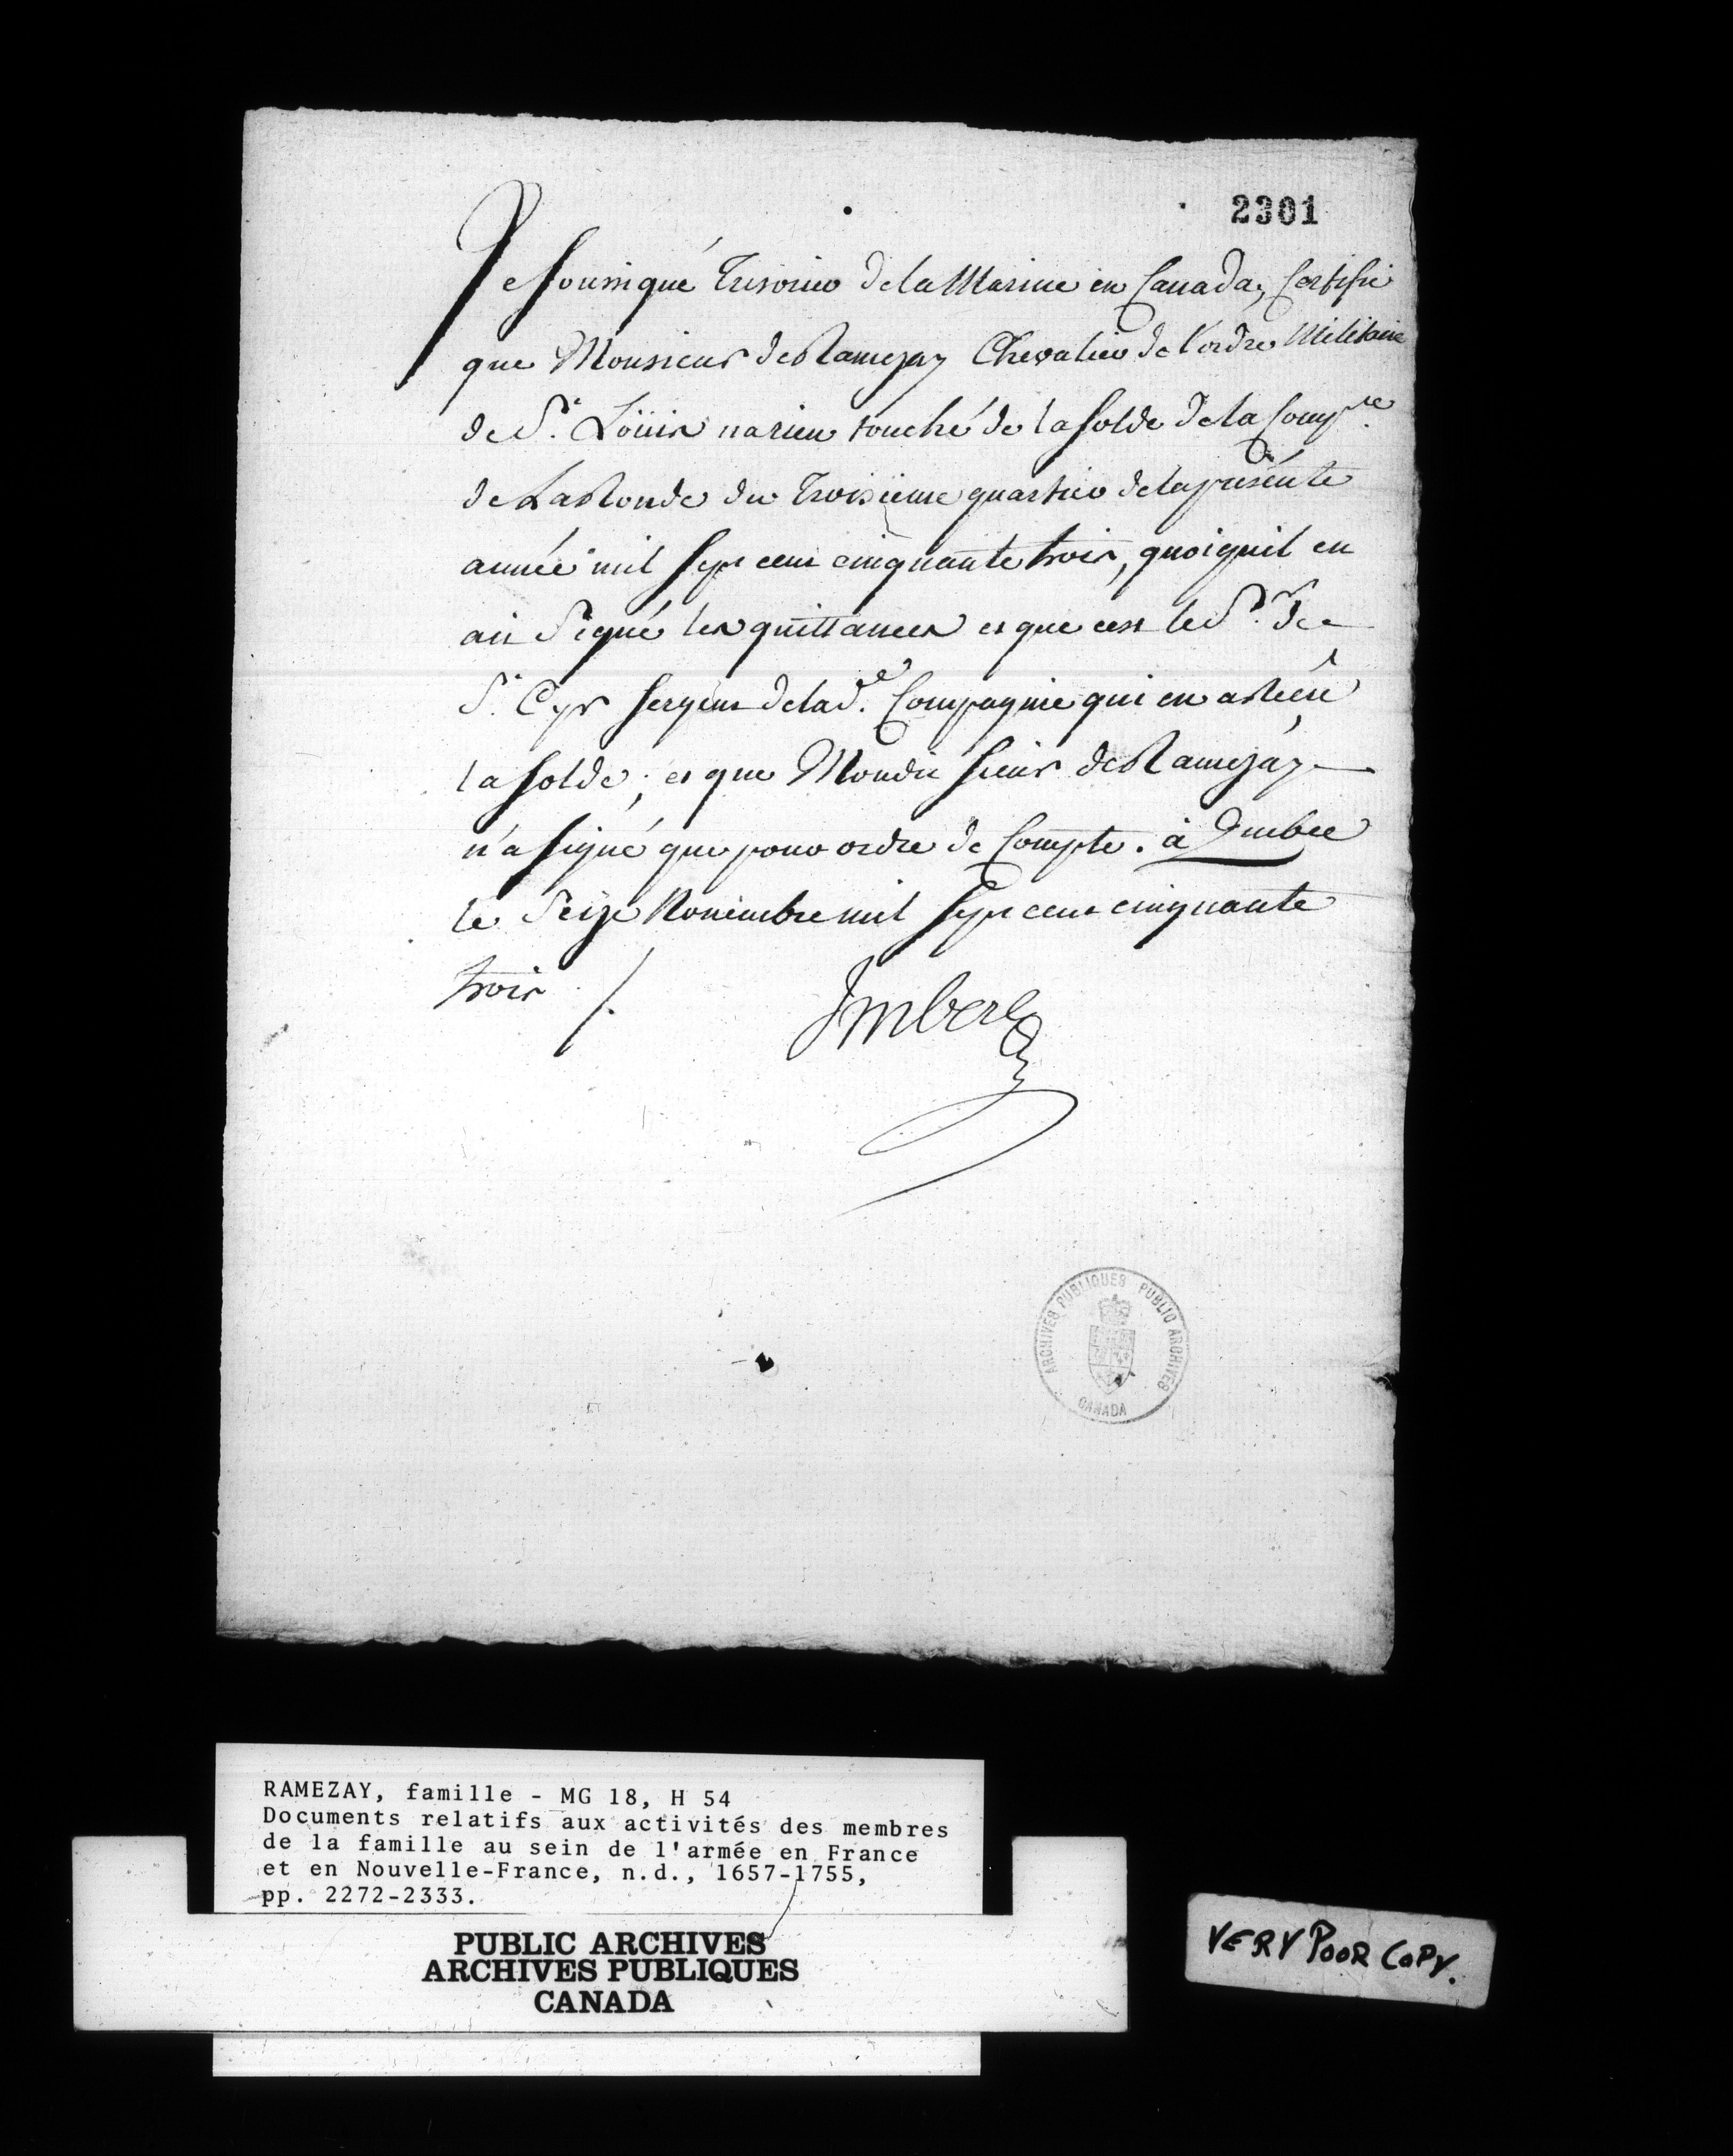 2301
Je soussigné Trésorier de la Marine en Canada, Certifie
que Monsieur de Ramezay Chevalier de l'ordre Militaire
de St. Loüis na rien touché de la solde de la Comp.nie
de La Ronde du Troisiéme quartier de la présente
année mil sept cent cinquante trois, quoiquil en
ait Signé les quittances et que cest le Sr. De
St. Cyr sergent de lad.e Compagnie qui en a Reçu
la solde; et que Mondit sieur de Ramezay
n'a signé que pour ordre de Compte. à Quebec
le Seize Novembre mil sept cent cinquante
trois ./.
Imbert
ARCHIVES PUBLIQUES PUBLIC ARCHIVES
CANADA
RAMEZAY, famille - MG 18, H 54
Documents relatifs aux activités des membres
de la famille au sein de l'armée en France
et en Nouvelle-France, n.d., 1657-1755,
pp. 2272-2333.
PUBLIC ARCHIVES
ARCHIVES PUBLIQUES
CANADA
VERY POOR COPY.